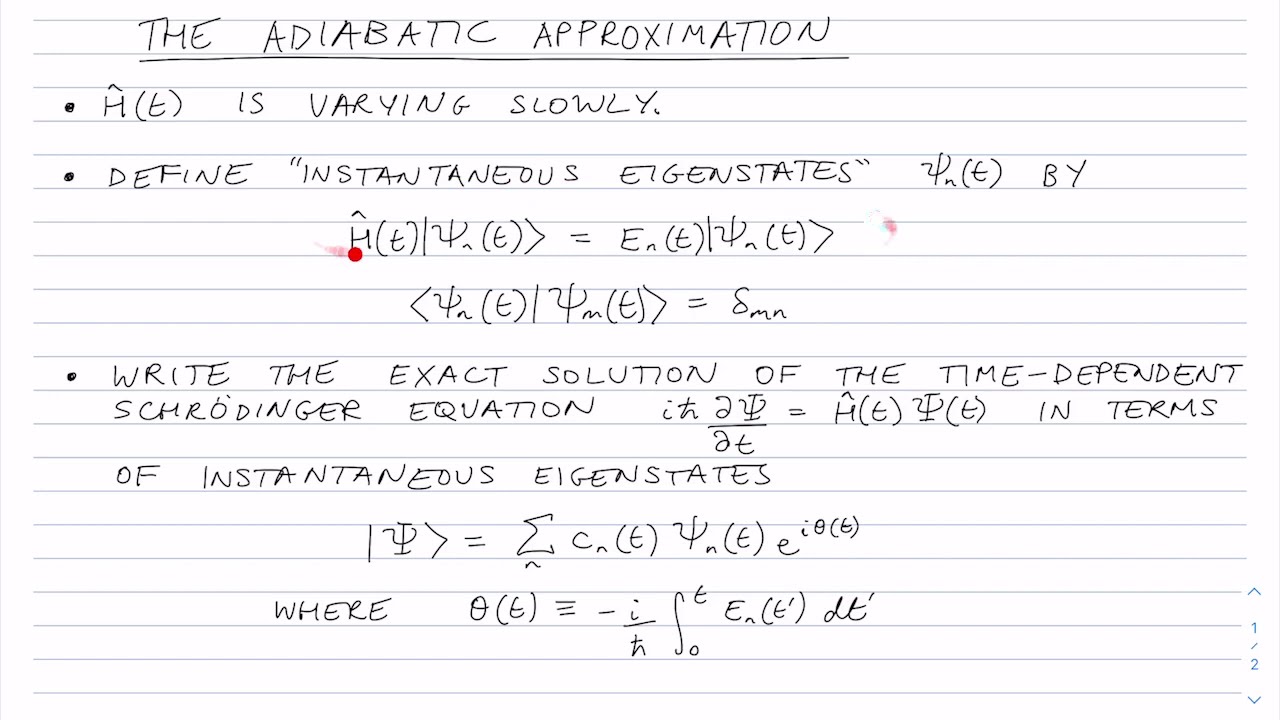 THE ADIABATIC APPROXIMATION
• Ĥ(t) IS VARYING SLOWLY.
• DEFINE "INSTANTANEOUS EIGENSTATES" Ψₙ(t) BY
Ĥ(t)|Ψₙ(t)⟩ = Eₙ(t)|Ψₙ(t)⟩
⟨Ψₙ(t)|Ψₘ(t)⟩ = δₘₙ
• WRITE THE EXACT SOLUTION OF THE TIME-DEPENDENT
SCHRÖDINGER EQUATION iħ ∂Ψ/∂t = Ĥ(t)Ψ(t) IN TERMS
OF INSTANTANEOUS EIGENSTATES
|Ψ⟩ = ∑ₙ cₙ(t) Ψₙ(t) e^{iθ(t)}
WHERE θ(t) ≡ -i/ħ ∫₀ᵗ Eₙ(t′) dt′
1
/
2